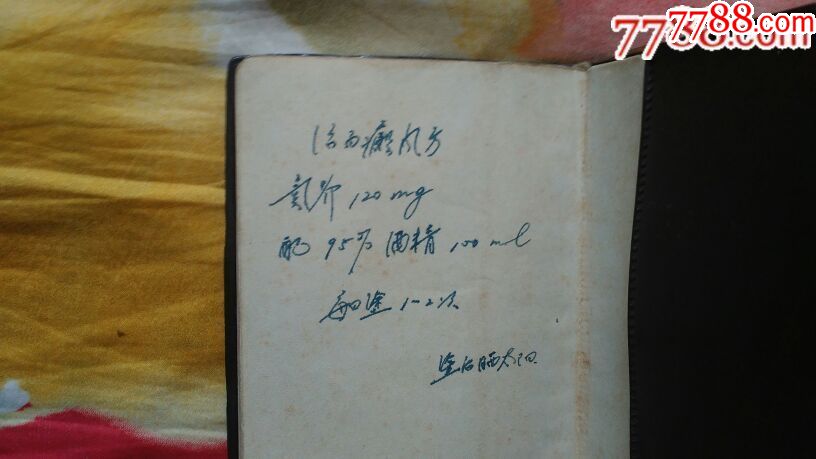 7788.com
7788.com
治白癜风方
氮芥 120 mg
配 95% 酒精 100 ml
每日塗 1-2次
塗后晒太阳